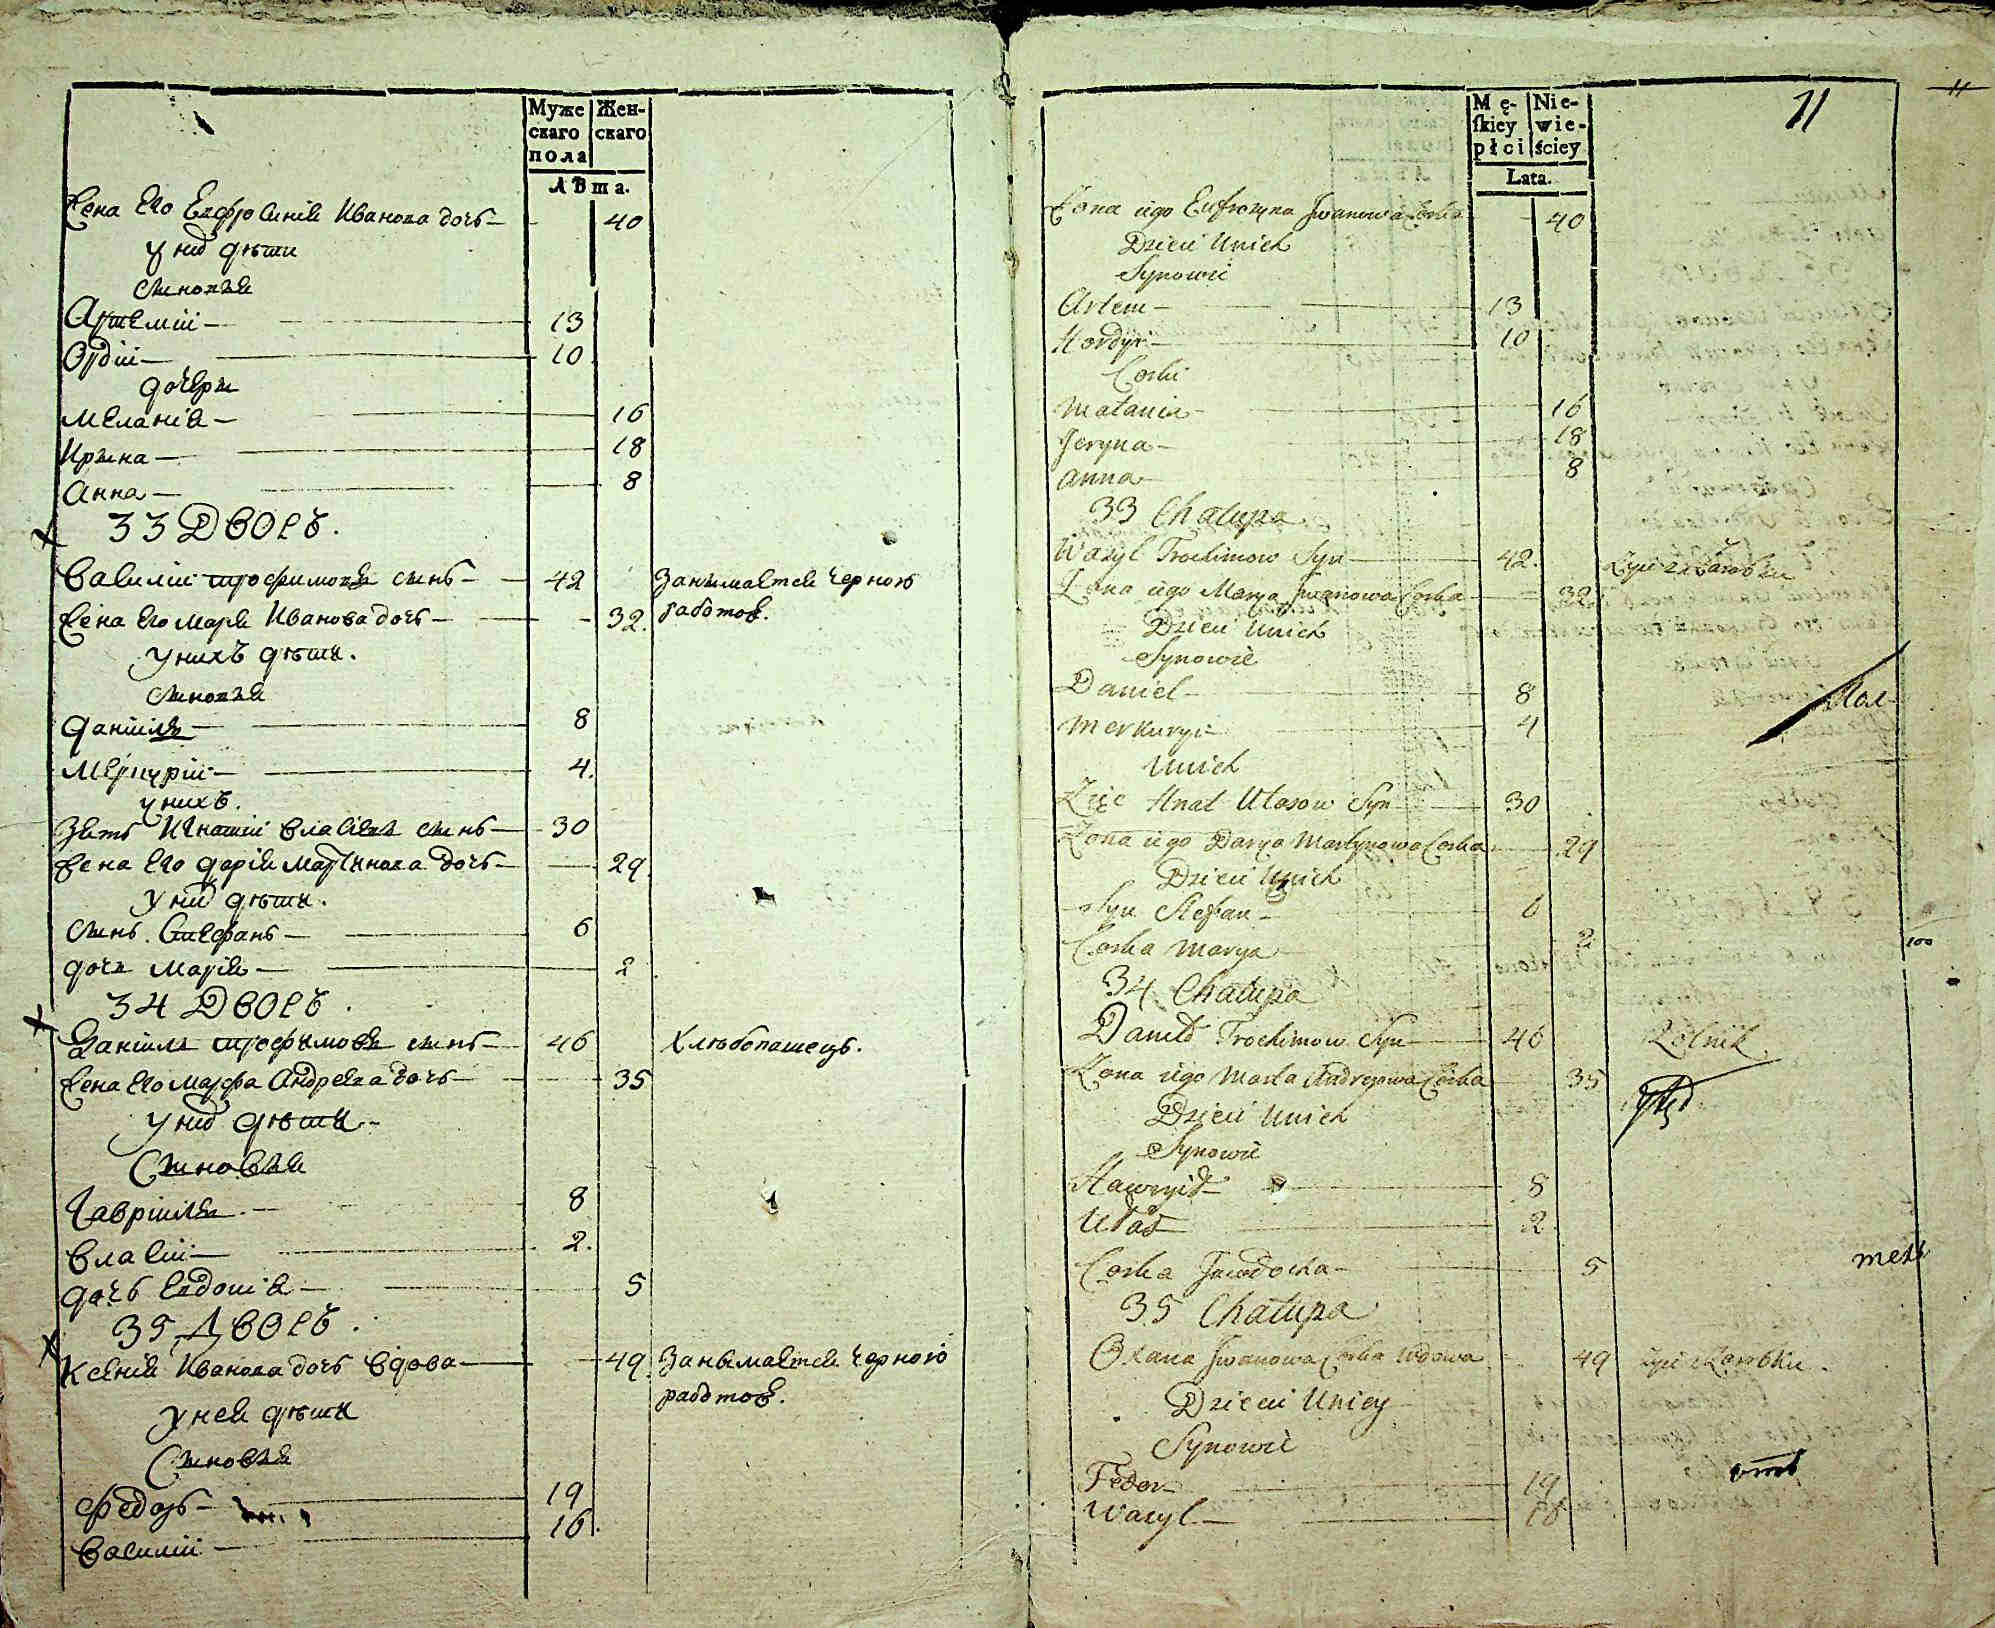 Муже
скаго
пола
Жен-
скаго
Лѣта.
Жена Его Евфросинія Иванова дочь — 40
у них дѣти
Сыновья
Артемій — 13
Ордій — 10
дочери
Меланія — 16
Ирына — 18
Анна — 8
33 ДВОРЪ.
Василій трофимовъ сынъ — 42 Занимается черною
Жена Его Марья Иванова дочь — 32. работою.
у нихъ дѣты.
Сыновья
Даніилъ — 8
Меркурій — 4.
у нихъ.
Зять Игнатій Власіевъ сынъ — 30
Жена Его Дарія Мартынова дочь — 29.
у них дѣты.
Сынъ Стефанъ — 6
дочь Марія — 2
34 ДВОРЪ.
Даніилъ трофымовъ сынъ — 46 Хлѣбопашецъ.
Жена Его Марфа Андреева дочь — 35
у них дѣты —
Сыновья
Гавріилъ. — 8
Власій — 2.
дочь Евдокія — 5
35 ДВОРЪ.
Ксенія Иванова дочь вдова — 49. Занымается Чорною
у ней дѣты работою.
Сыновья
Федоръ — 19
Василій — 16.
11
11
Mę-
ſkiey
płci
Nie-
wie-
ściey
Lata.
Żona iego Eufrozyna Iwanowa Corka — 40
Dzieci Unich
Synowie
Artem — 13
Hordyi — 10
Corki
Matania — 16
Jeryna — 18
Anna — 8
33 Chałupa
Wazyl Trochimow Syn — 42. Żyie z Zarobku
Żona iego Marya Iwanowa Corka — 32.
Dzieci Unich
Synowie
Daniel — 8
Merkuryi — 4
Unich
Zięc Hnat Ułasow Syn — 30
Żona iego Darya Martynowa Corka — 29
Dzieci Unich
Syn Stefan — 6
Corka Marya — 2
34 Chałupa
Daniło Trochimow Syn — 46 Rolnik
Żona iego Marta Andrejowa Corka — 35
Dzieci Unich
Synowie
Hawryił — 8
Ułas — 2
Corka Jawdocha — 5
35 Chałupa
Oxana Iwanowa Corka Wdowa — 49 Żyie z Zarobku.
Dzieci Uniey
Synowie
Fedor — 19
Wasyl — 16